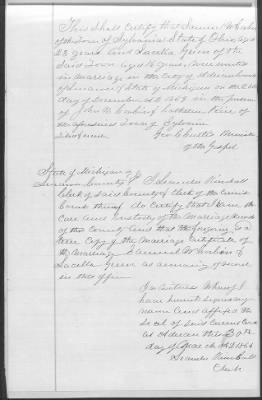 This shall certify that Samuel W
of the Town of Sylvania State of Ohio, aged
23 years and Lucetta Green of the
said Town aged 16 years were united
in marriage in the City of Adrian
of Lenawee State of Michigan on the
day of December A.D. 1863 in the presence
of John W and
of the aforesaid Town of Sylvania
Geo C Curtis Minister
of the Gospel
State of Michigan
Lenawee County I Leander Kimball
Clerk of said County & Clerk of the Circuit
Court thereof do certify that I have the
care and custody of the Marriage Records
of the County and that the foregoing is a
true Copy of the Marriage Certificate of
the Marriage Samuel W to
Lucetta Green as remaining of record
in this office
In witness whereof I
have hereunto signed my
name and affixed the
seal of said Circuit Court
at Adrian this 30th
day of March A.D. 1866
Leander Kimball
Clerk